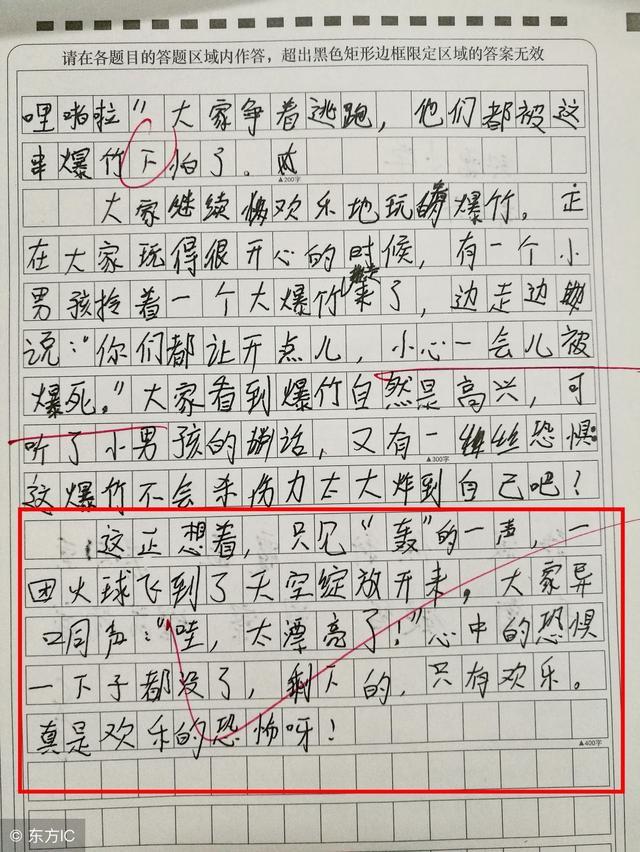 请在各题目的答题区域内作答，超出黑色矩形边框限定区域的答案无效
哩啪啦”大家争着逃跑，他们都被这
串爆竹下怕了。
▲200字
大家继续欢乐地玩的爆竹。正
在大家玩得很开心的时候，有一个小
男孩拎着一个大爆竹来了，边走边
说：“你们都让开点儿，小心一会儿被
爆死。”大家看到爆竹自然是高兴，可
听了小男孩的话，又有一丝恐惧：
▲300字
这爆竹不会杀伤力太大炸到自己吧？
这正想着，只见“轰”的一声，一
团火球飞到了天空绽放开来，大家异
口同声：“哇，太漂亮了！”心中的恐惧
一下子都没了，剩下的，只有欢乐。
真是欢乐的恐怖呀！
▲400字
© 东方IC